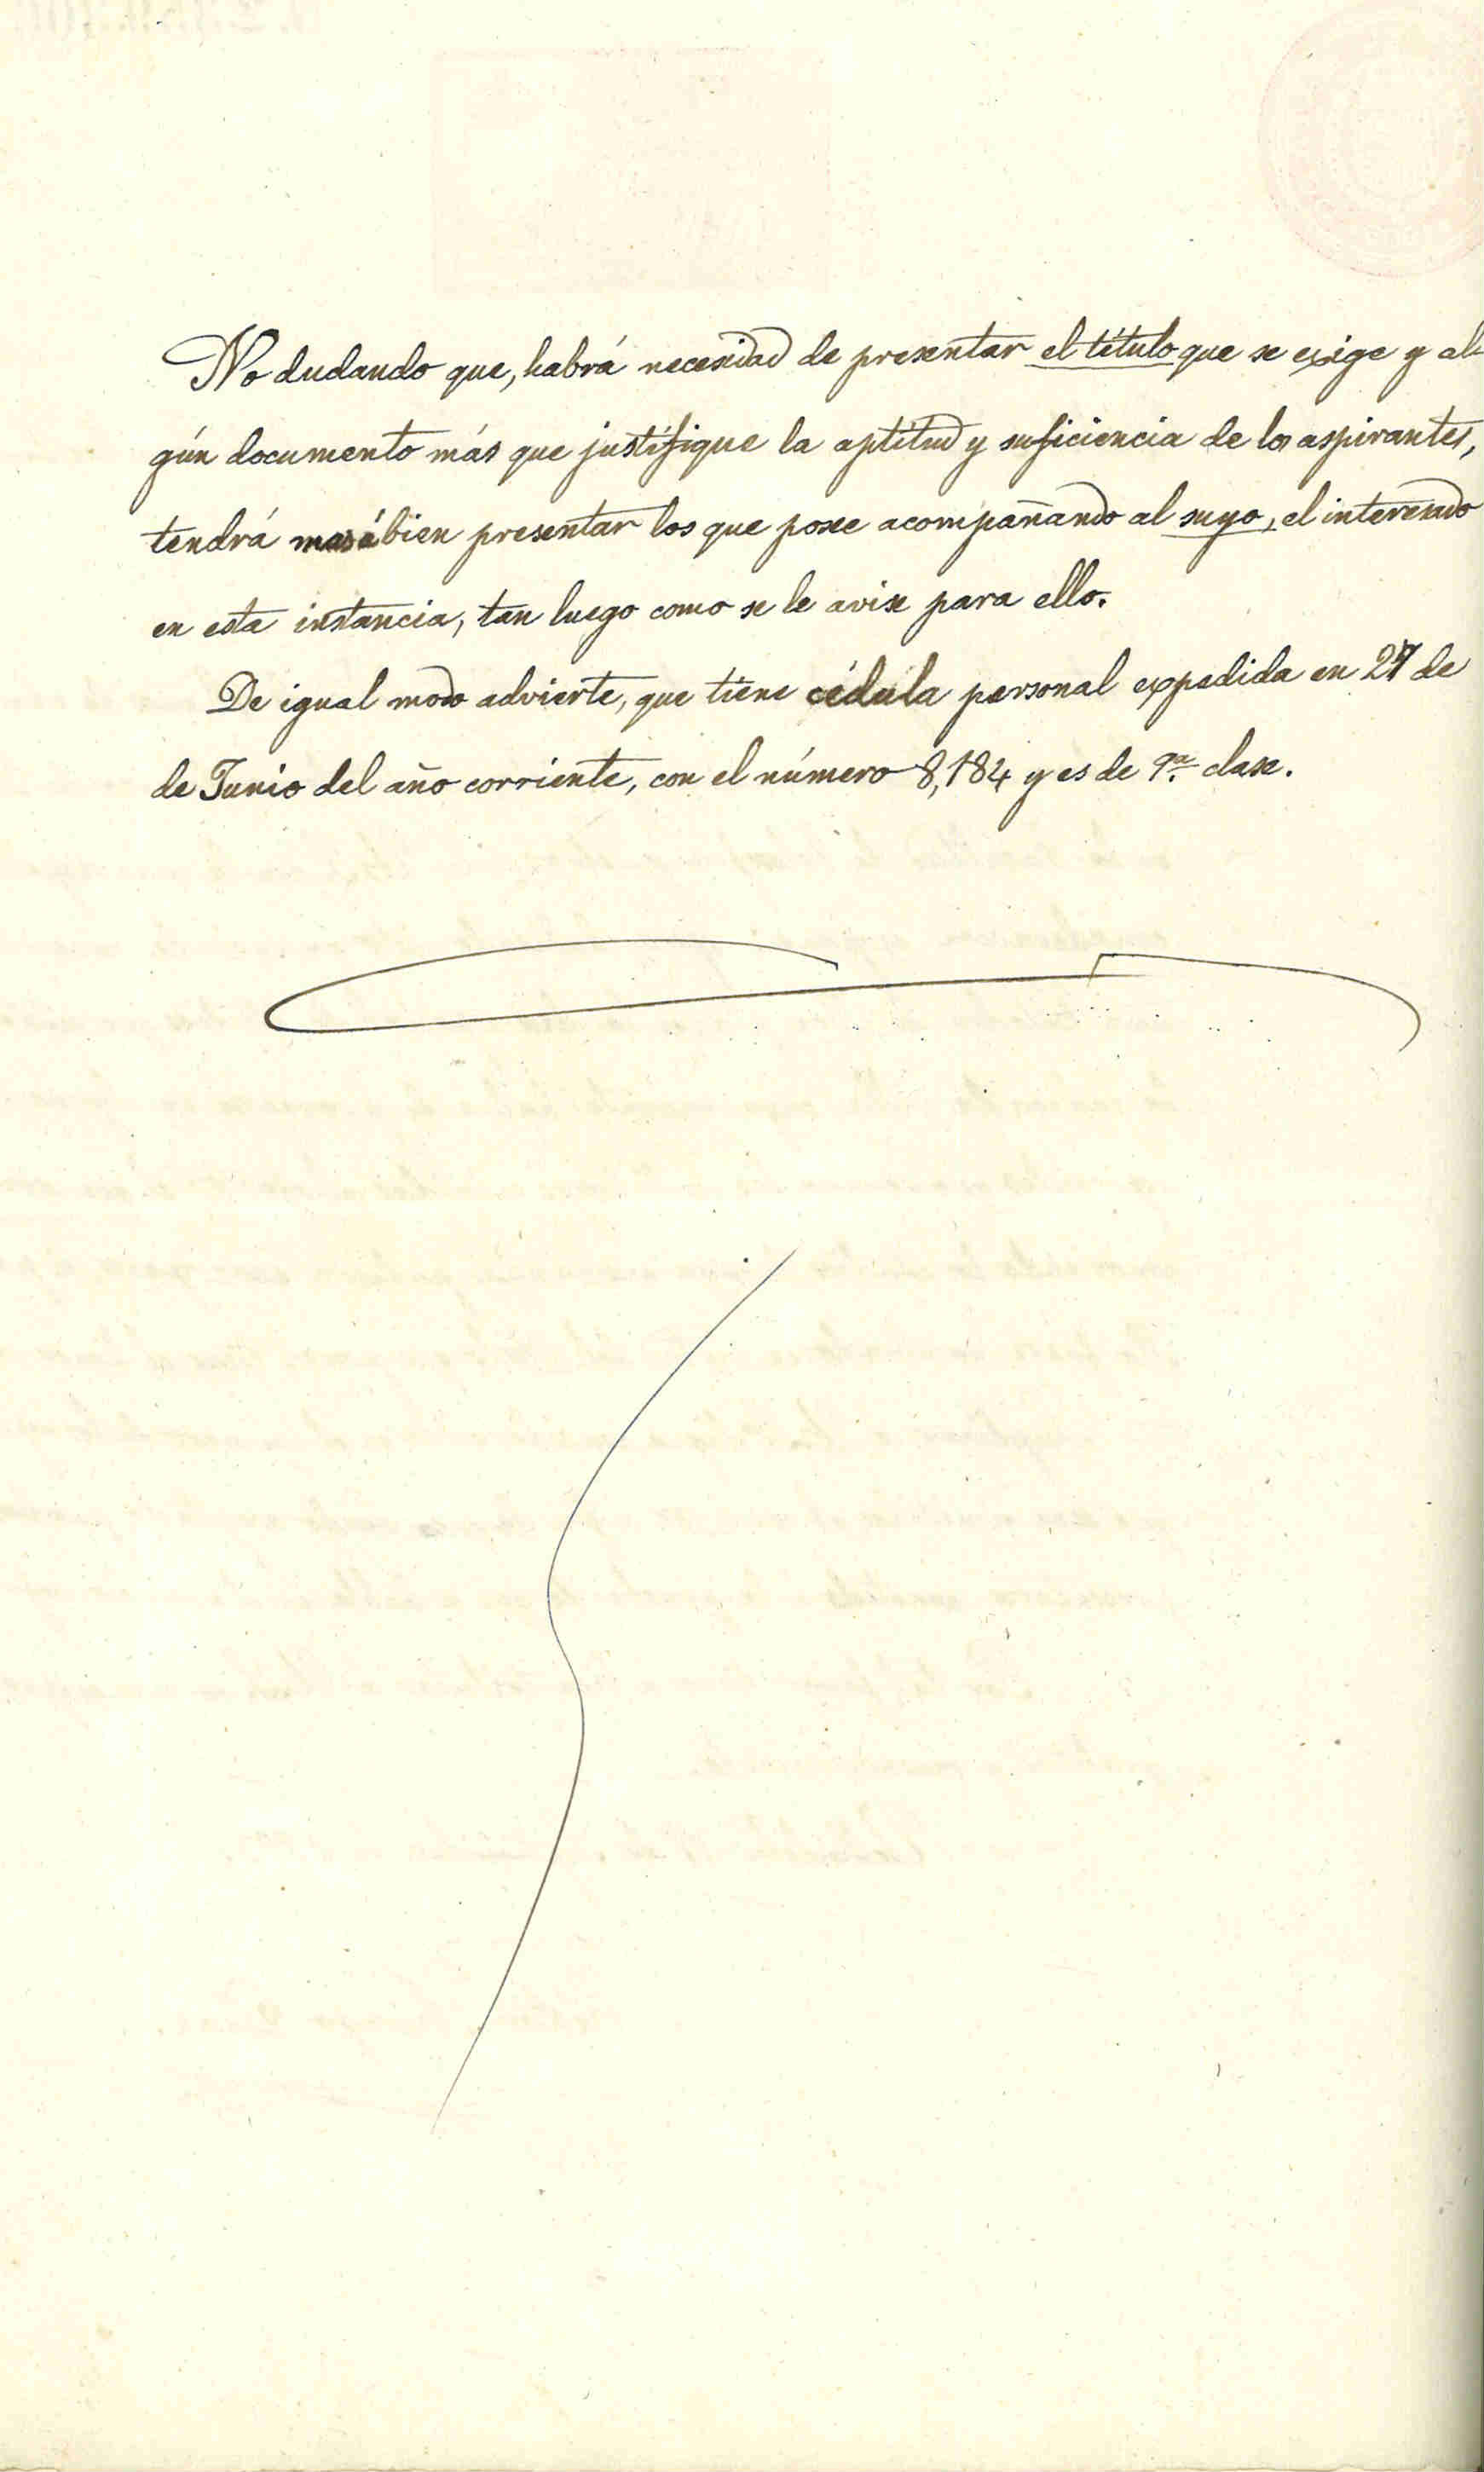 No dudando que, habrá necesidad de presentar el título que se exige y al-
gún documento más que justifique la aptitud y suficiencia de los aspirantes,
tendrá á bien presentar los que posee acompañando al suyo, el interesado
en esta instancia, tan luego como se le avise para ello.
De igual modo advierte, que tiene cédula personal expedida en 27 de
de Junio del año corriente, con el número 8,184 y es de 9.ª clase.